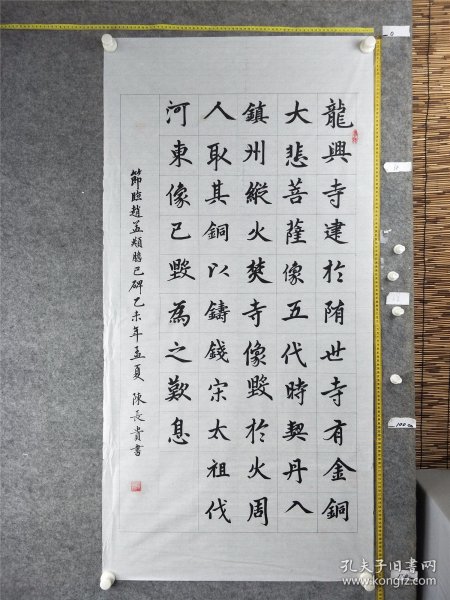 龍興寺建於隋世寺有金銅
大悲菩薩像五代時契丹入
鎮州縱火焚寺像毀於火周
人取其銅以鑄錢宋太祖伐
河東像已毀為之歎息
節臨趙孟頫膽巴碑乙未年孟夏 陳長貴書
孔夫子旧书网
www.kongfz.com